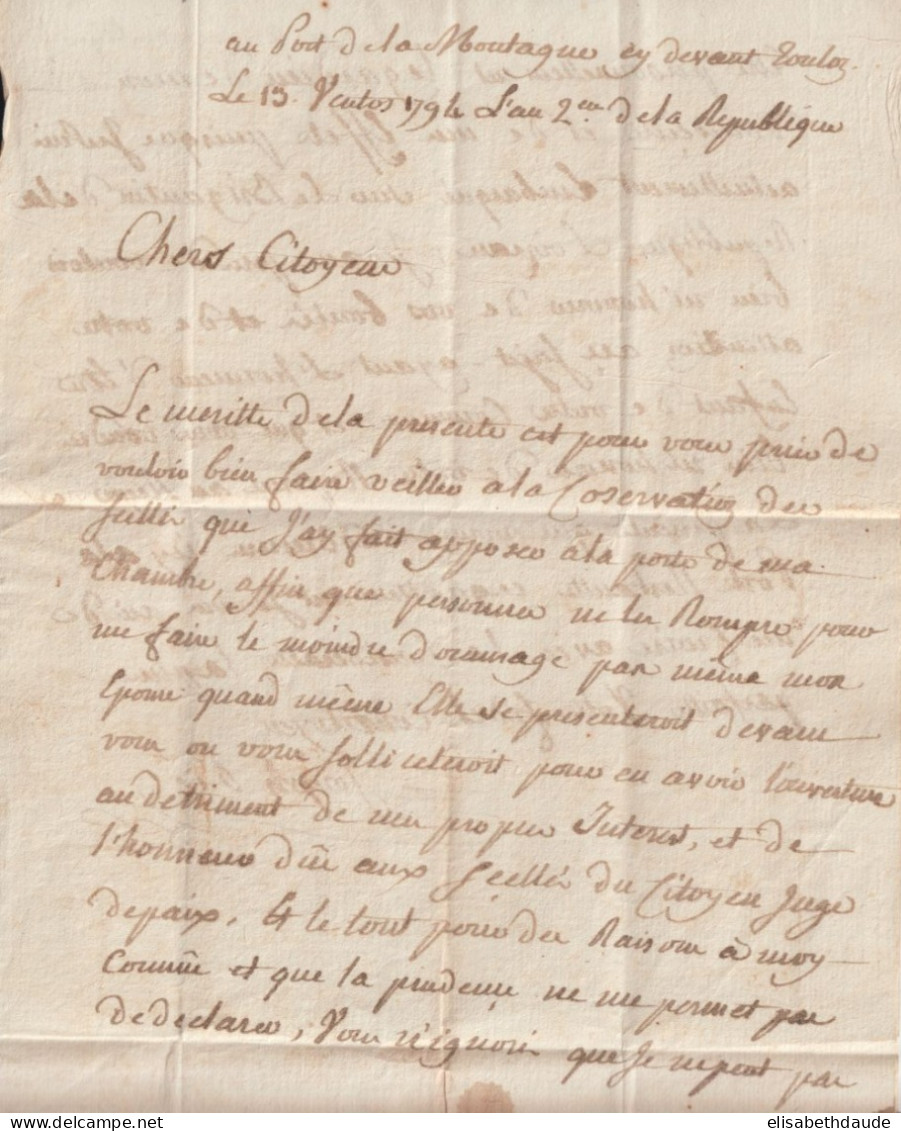 au Port de la Montagne cy devant Toulon
Le 13. Ventos 1794 L'an 2.em de la Republique
Chers Citoyens
Le meritte de la presente est pour vous prier de
vouloir bien faire veiller a la Coservation des
sellés que J'ay fait apposer a la porte de ma
Chambre, affin que personne ne les Rompre pour
me faire le moindre domage pas même mon
Epouse quand même Elle se presenteroit devant
vous ou vous solliciteroit pour en avoir l'ouverture
au detriment de mes propres Interets, et de
l'honneur dû aux scellés du Citoyen Juge
depaix, Et le tout pour des Raisons a moy
Connûe et que la prudence ne me permet pas
de declarer, Vous n'ignorés que Je ne peut pas
elisabethdaude